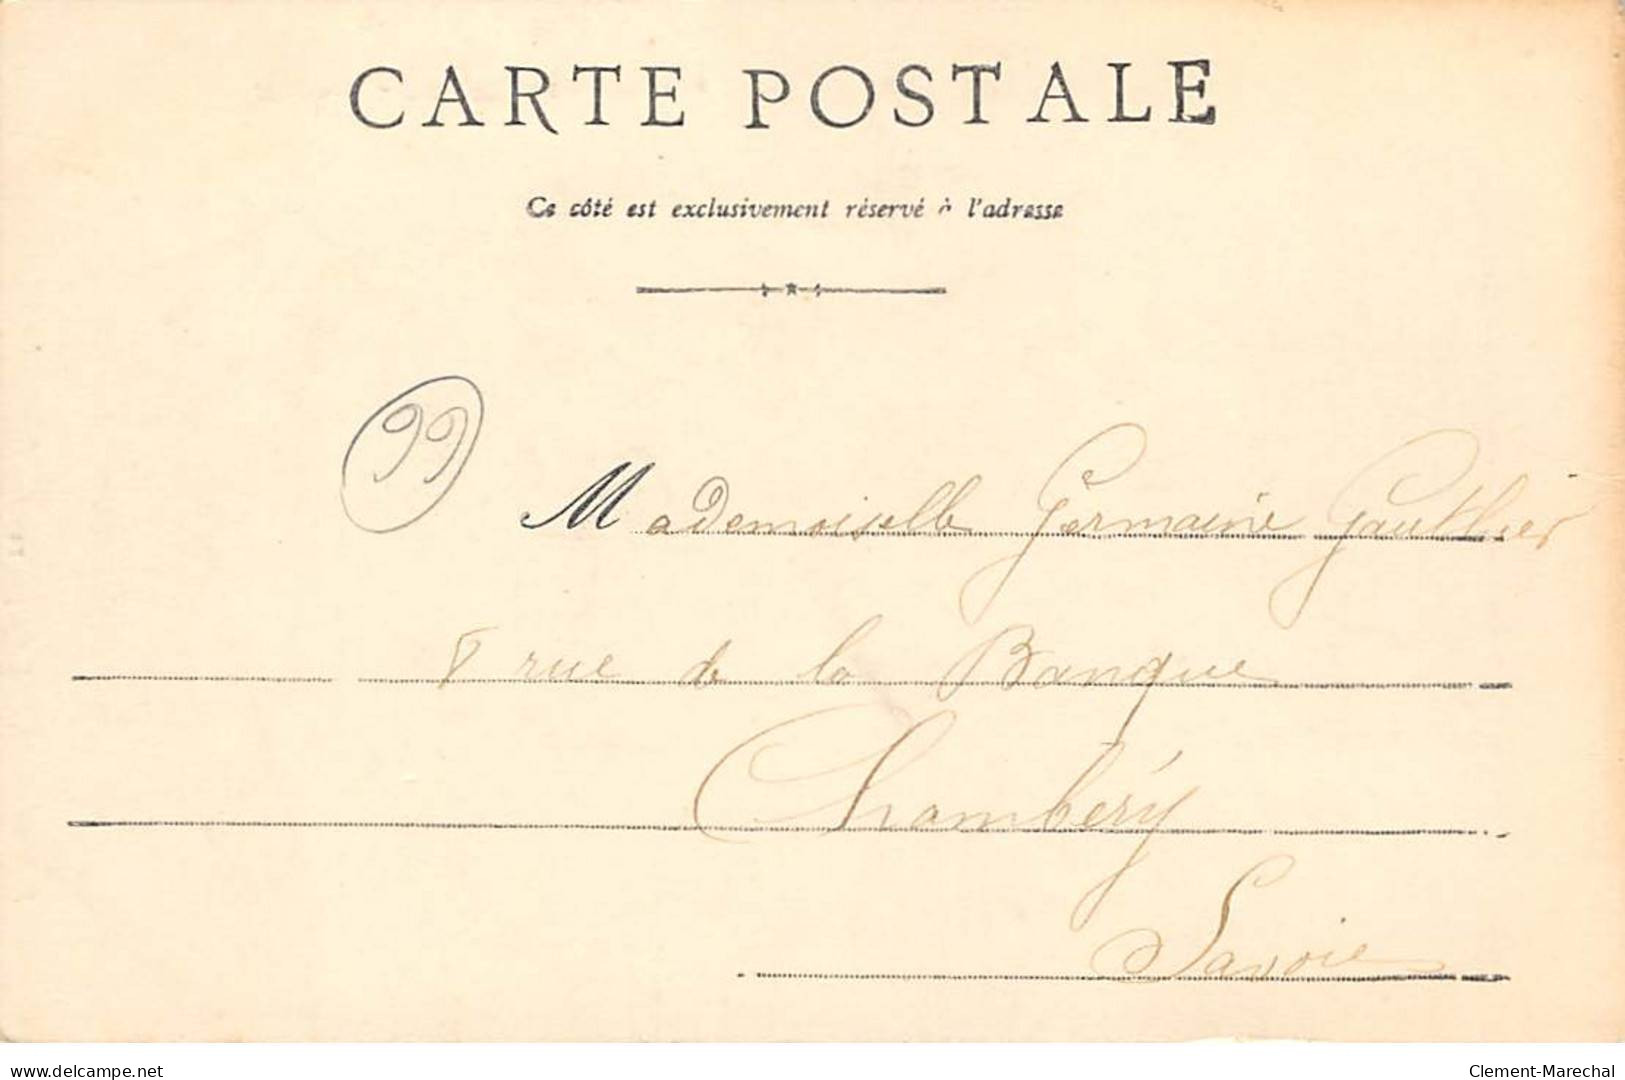 CARTE POSTALE
Ce côté est exclusivement réservé à l'adresse
99
Mademoiselle Germaine Gauthier
8 rue de la Banque
Chambéry
Savoie
www.delcampe.net
Clement-Marechal